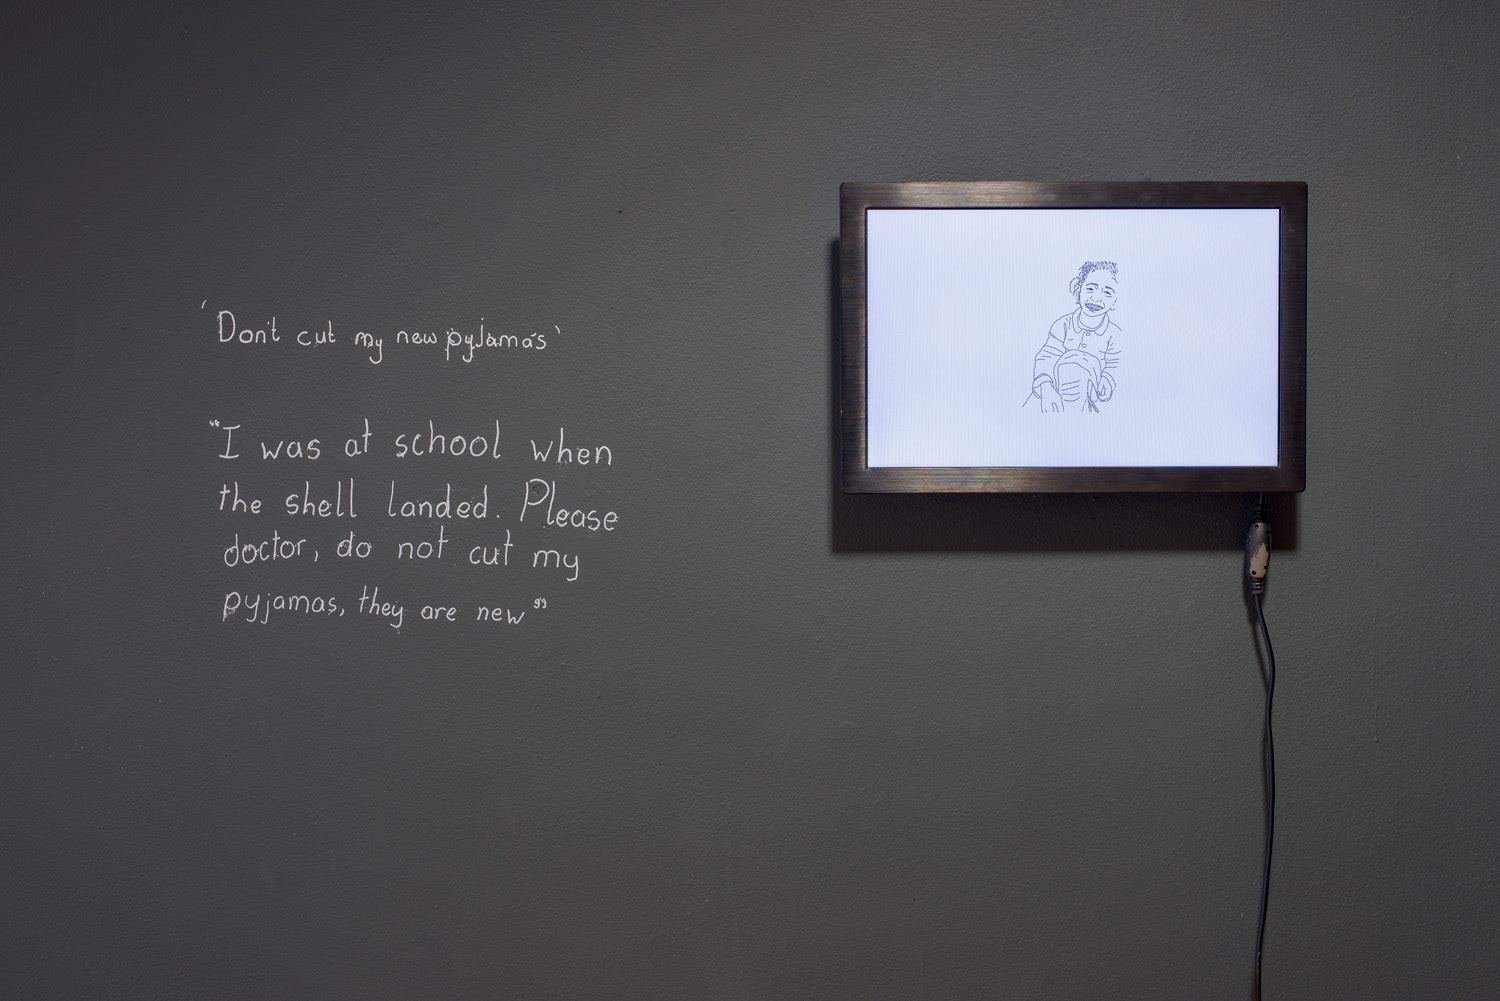 ‘Don't cut my new pyjamas’
“I was at school when
the shell landed. Please
doctor, do not cut my
pyjamas, they are new”